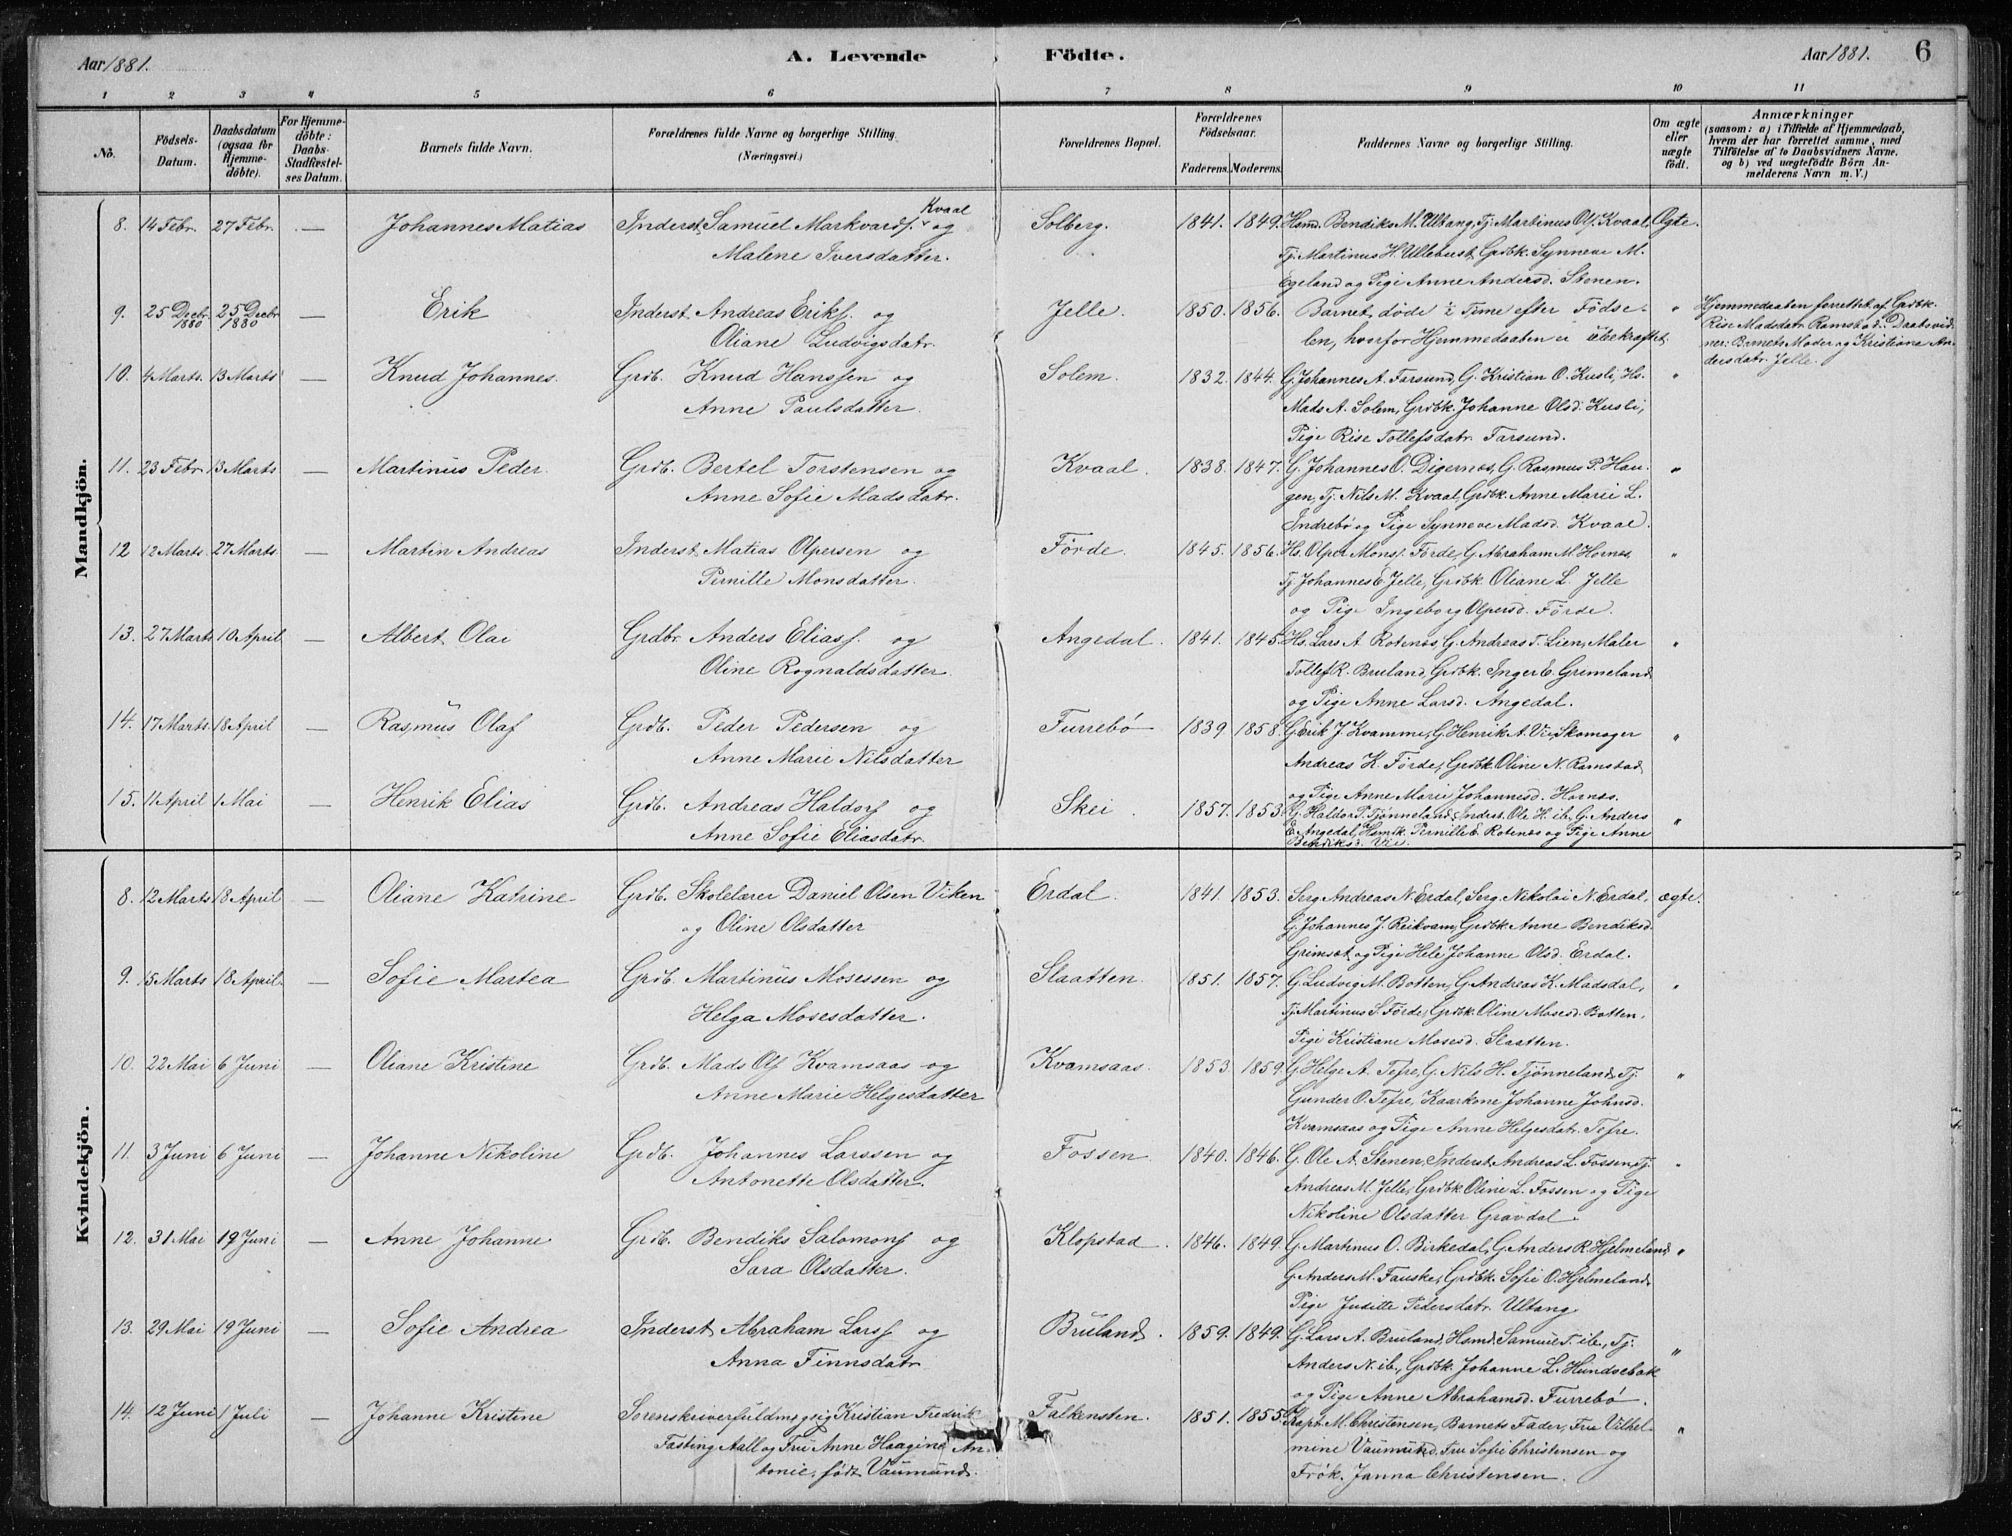 Aar 1881. A. Levende Födte. Aar 1881. 6
1 2 3 4 5 6 7 8 9 10 11
No. Födsels-Datum. Daabsdatum (ogsaa for Hjemme-döbte). For Hjemme-döbte: Daabs-Stadfæstel-ses Datum. Barnets fulde Navn. Forældrenes fulde Navne og borgerlige Stilling. (Næringsvei.) Forældrenes Bopæl. Forældrenes Födselsaar. Faderens. Moderens. Faddernes Navne og borgerlige Stilling. Om ægte eller uægte födt. Anmærkninger (saasom: a) i Tilfælde af Hjemmedaab, hvem der har forrettet samme, med Tilföielse af to Daabsvidners Navne, og b) ved uægtefödte Börn An-melderens Navn m. V.)
Mandkjön.
8. 14 Febr. 27 Febr. — Johannes Matias Inderst. Samuel Markvards. Kvaal og Solberg. 1841. 1849. Hsmd. Bendiks M. Ultang, Tj. Martinus Ols. Kvaal, Ægte.
Malene Iversdatter. Tj. Martinus H. Ullebust, Grdbk. Synneve M.
Egeland og Pige Anne Andersd. Stenen.
9. 25 Decbr 1880 25 Decbr 1880 — Erik Inderst. Andreas Eriks. og Jelle. 1850. 1856. Barnet döde ½ Time efter Födse- " Hjemmedaaben forrettet af Grdbk.
Oliane Ludvigsdatr. len, hvorfor Hjemmedaaben ei stadfæstet. Rise Madsdatr. Ramstad. Daabsvid-
ner: Barnets Moder og Kristiane An-
dersdatr. Jelle.
10. 4 Marts. 13 Marts — Knud Johannes. Grdb. Knud Hanssen og Solem. 1832. 1844. G. Johannes A. Farsund, G. Kristian O. Kusli, Hs. "
Anne Paulsdatter. Mads A. Solem, Grdbk. Johanne Olsd. Kusli,
Pige Rise Tollefsdatr. Farsund.
11. 23 Febr. 13 Marts — Martinus Peder. Grdb. Bertel Torstensen og Kvaal. 1838. 1847. G. Johannes O. Digernæs, G. Rasmus P. Hau- "
Anne Sofie Madsdatr. gen, Tj. Nils M. Kvaal, Grdbk. Anne Marie L.
Indrebö og Pige Synneve Madsd. Kvaal.
12 12 Marts. 27 Marts. — Martin Andreas Inderst. Matias Olpersen og Förde. 1845. 1856. Hs. Olper Mons. Förde, G. Abraham M. Hornes, "
Pernille Monsdatter. Tj. Johannes E. Jelle, Grdbk. Oliane L. Jelle
og Pige Ingeborg Olpersd. Förde.
13. 27 Marts 10 April — Albert Olai Grdbr. Anders Eliass. og Angedal. 1841. 1845. Hs. Lars A. Rotenæs, G. Andreas T. Lien, Maler "
Oline Rognaldsdatter. Tollef R. Bruland, Grdbk. Inger E. Grimeland
og Pige Anne Larsd. Angedal.
14. 17 Marts. 18 April — Rasmus Olaf Grdb. Peder Pedersen og Furrebö 1839 1858. G. Erik J. Kvamme, G. Henrik A. Vie, Skomager "
Anne Marie Nilsdatter Andreas K. Förde, Grdbk. Oline N. Ramstad
og Pige Anne Marie Johannesd. Hornæs.
15. 11 April 1 Mai — Henrik Elias Grdb. Andreas Haldors. og Skei. 1857. 1853. G. Haldor P. Tjönneland, Inderst. Ole H. ib., G. Anders "
Anne Sofie Eliasdatr. E. Angedal, Hsmk. Pernille E. Rotenæs og Pige Anne
Bendiksd. Vie.
Kvindekjön.
8. 12 Marts 18 April — Oliane Katrine Grdb. Skolelærer Daniel Olsen Viken Erdal. 1841. 1853. Serg. Andreas N. Erdal, Serg. Nikolai N. Erdal, ægte.
og Oline Olsdatter G. Johannes J. Reikvam, Grdbk. Anne Bendiksd.
Grimset og Pige Hele Johanne Olsd. Erdal.
9. 15 Marts 18 April. — Sofie Martea Grdb. Martinus Mosessen og Slaatten. 1851. 1857. G. Ludvig M. Botten, G. Andreas K. Madsdal, "
Helga Mosesdatter. Tj. Martinus S. Förde, Grdbk. Oline Mosesd. Botten.
Pige Kristiane Mosesd. Slaatten.
10. 22 Mai 6 Juni — Oliane Kristine Grdb. Mads Ols. Kvamsaas og Kvamsaas. 1853. 1859. G. Helge A. Tefre, G. Nils H. Tjönneland, Tj. "
Anne Marie Helgesdatter Gunder O. Tefre, Kaarkone Johanne Johnsd.
Kvamsaas og Pige Anne Helgesdatr. Tefre.
11. 3 Juni 6 Juni — Johanne Nikoline Grdb. Johannes Larssen og Fossen. 1840. 1846. G. Ole A. Stenen, Inderst. Andreas L. Fossen, Tj. "
Antonette Olsdatter. Andreas M. Jelle, Grdbk. Oline L. Fossen og Pige
Nikoline Olsdatter Gravdal.
12. 31 Mai 19 Juni — Anne Johanne Grdb. Bendiks Salomons. og Klopstad. 1846. 1849. G. Martinus O. Birkedal, G. Anders R. Hjelmeland, "
Sara Olsdatter. G. Anders M. Fauske, Grdbk. Sofie O. Hjelmeland,
Pige Juditte Pedersdatr. Ultang.
13. 29 Mai 19 Juni — Sofie Andrea Inderst. Abraham Larss. og Bruland. 1859. 1849. G. Lars A. Bruland, Hsmd. Samuel T. ib., Tj. "
Anna Finnsdatr. Anders N. ib., Grdbk. Johanne L. Hundsebak
og Pige Anne Abrahamsd. Furrebö.
14. 12 Juni 1 Juli — Johanne Kristine Sorenskriverfuldmægtig Kristian Frederik Falkensten. 1851. 1855. Kapt. M. Christensen, Barnets Fader, Fru Vilhel- "
Fasting Aall og Fru Anne Haagine An- mine Vaumund, Fru Sofie Christensen og
tonie, födt Vaumund. Frök. Janna Christensen.